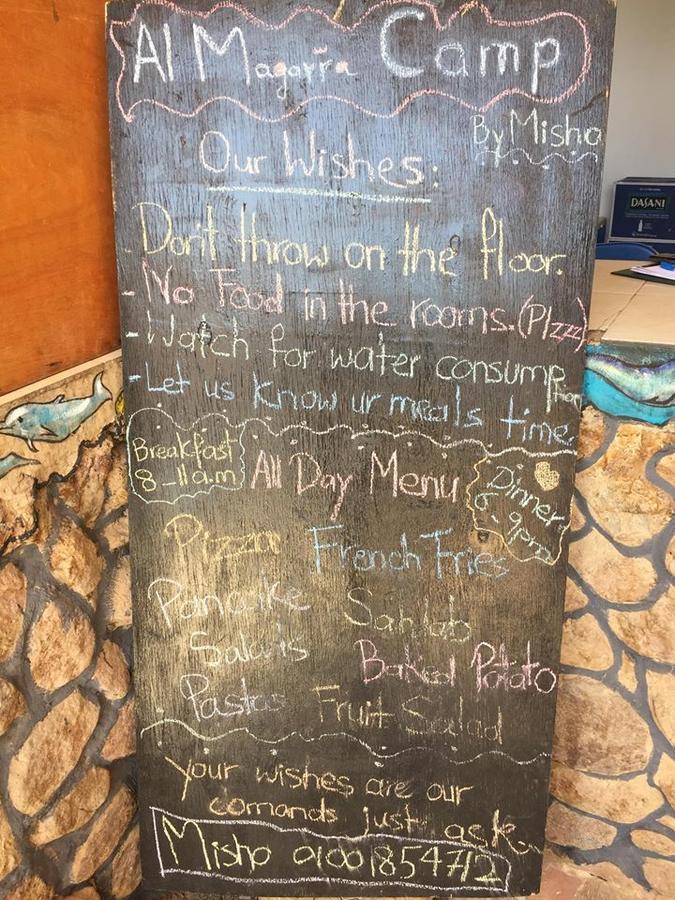 Al Magarra Camp
By Misho
Our Wishes:
- Don't throw on the floor.
- No Food in the rooms. (Plzzz)
- Watch for water consumption
- Let us know ur meals time
Breakfast
8_11 a.m
All Day Menu
Dinner
6_9pm
Pizza French Fries
Pancake Sahlab
Salads Baked Potato
Pastas Fruit Salad
your wishes are our
comands just ask
Misho 01001854712
DASANI